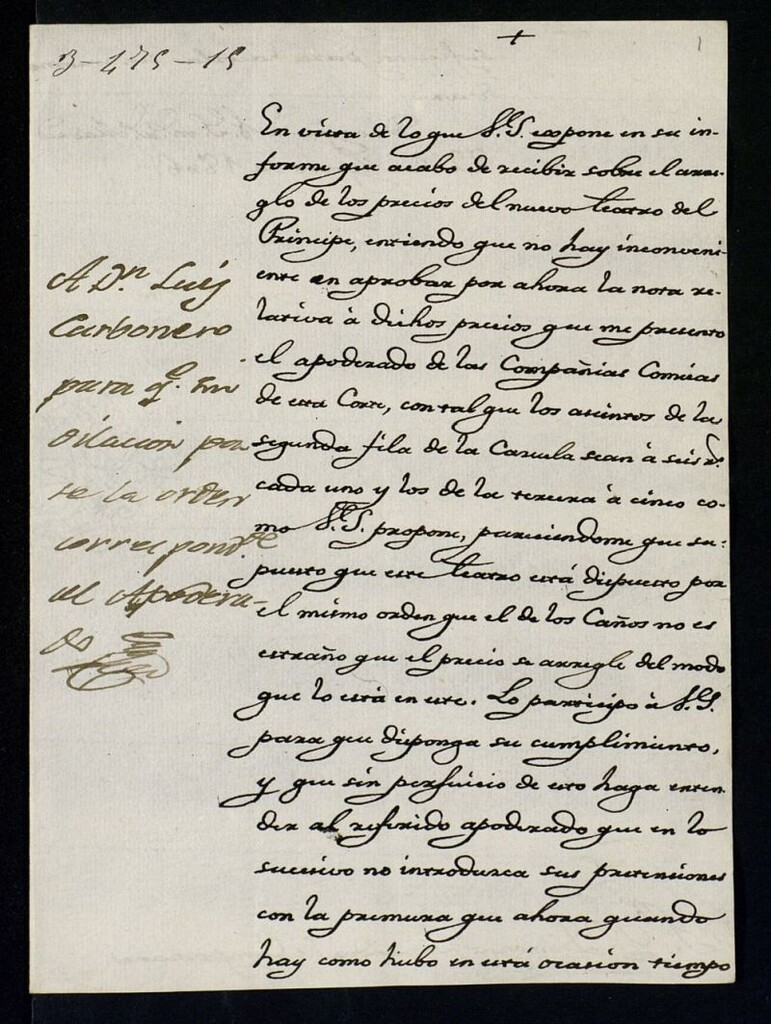 3-475-15
+
1
En vista de lo que V.S. expone en su in-
forme que acabo de recibir sobre el arre-
glo de los precios del nuevo teatro del
Principe, entiendo que no hay inconveni-
ente en aprobar por ahora la nota re-
lativa à dichos precios que me presentó
el apoderado de las Compañias Comicas
de esta Corte, con tal que los asientos de la
segunda fila de la Cazuela sean à seis r.s
cada uno y los de la tercera à cinco co-
mo V.S. propone, pareciendome que su-
puesto que este teatro está dispuesto por
el mismo orden que el de los Caños no es
estraño que el precio se arregle del modo
que lo está en este. Lo participo à V.S.
para que disponga su cumplimiento,
y que sin perjuicio de esto haga enten-
der al referido apoderado que en lo
sucesivo no introduzca sus pretensiones
con la premura que ahora quando
hay como hubo en está ocasion tiempo
A D.n Luis
Carbonero
para q.e sin
dilacion pa
se la orden
correspond.te
al Apodera-
do